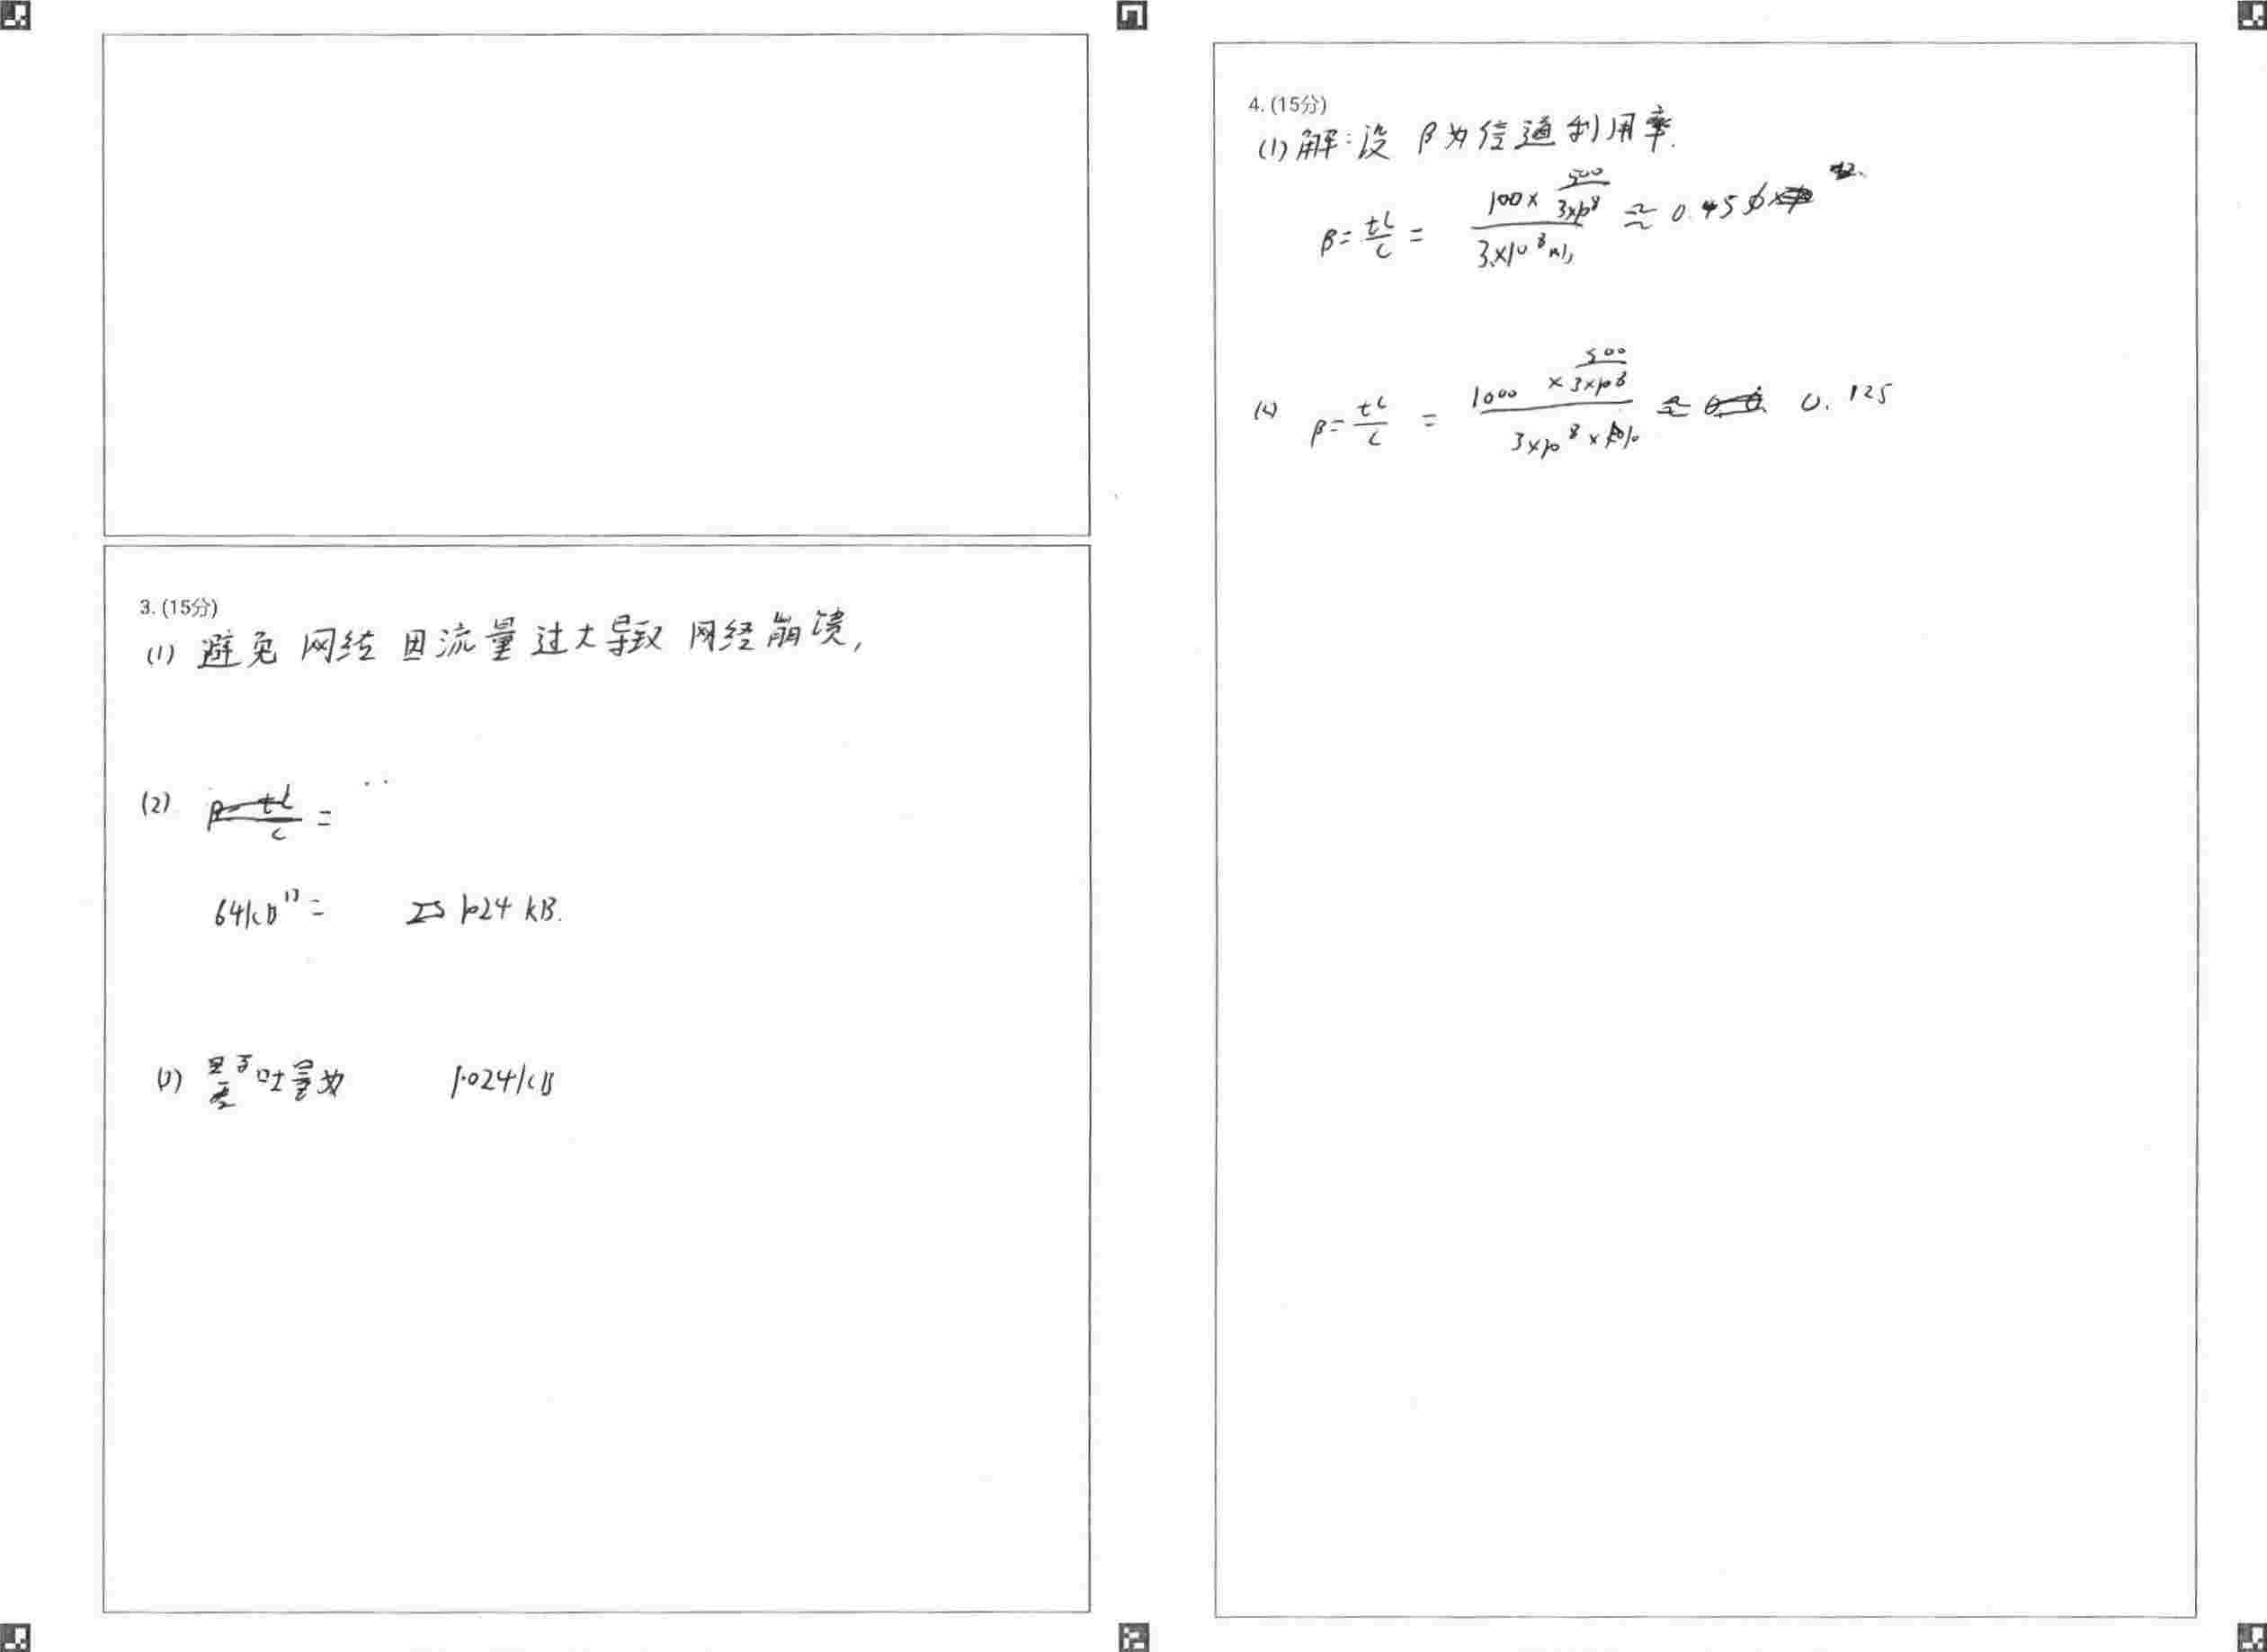 3. (15分)
(1) 避免 网络 因流量 过大导致 网络崩溃,
(2)
64kB = 1024 kB.
(3) 吞吐量为 1.024kB
4. (15分)
(1) 解:设 β为信道利用率.
β= tL/C = 100× 500/3×10^8 / 3×10^8 m/s ≈ 0.45
(2) β= tL/C = 1000 × 500/3×10^8 / 3×10^8 × ≈ 0.125